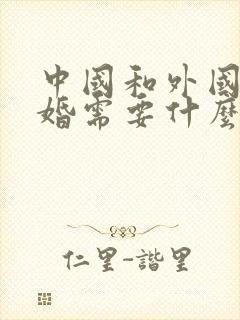 中國和外國
婚需要什麼
仁里-諧里